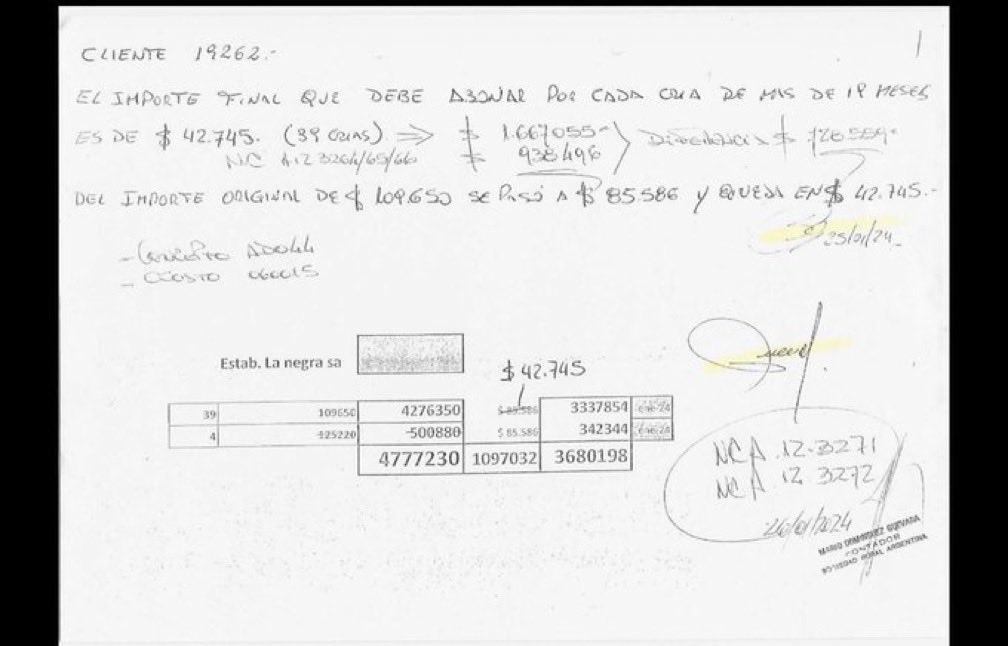 1
CLIENTE 19262.-
EL IMPORTE FINAL QUE DEBE ABONAR POR CADA CRIA DE MAS DE 18 MESES
ES DE $ 42.745. (39 CRIAS) => $ 1.667.055- DIFERENCIA $
NC A 12 3264/65/66 $ 938.496
DEL IMPORTE ORIGINAL DE $ 109.650 SE PASÓ A $ 85.586 Y QUEDA EN $ 42.745.-
25/01/24-
- CONCEPTO
- CCOSTO
Estab. La negra sa
$ 42.745
39 109650 4276350 $ 85.586 3337854 ene-24
4 125220 500880 $ 85.586 342344 ene-24
4777230 1097032 3680198
NC A 12-3271
NC A 12 3272
26/01/2024
MARIO DOMINGUEZ GUEVARA
CONTADOR
SOCIEDAD RURAL ARGENTINA